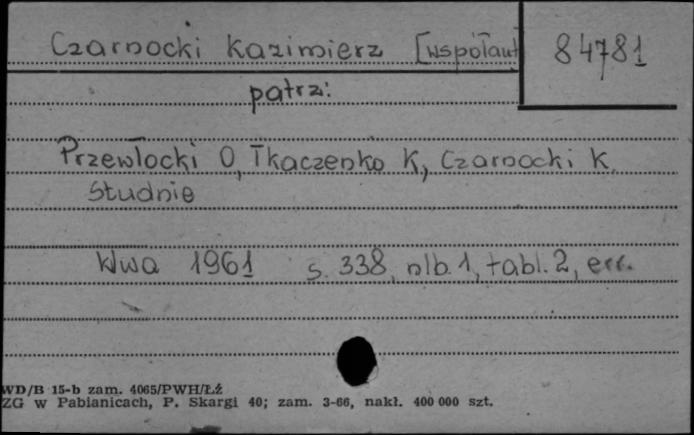 Czarnocki Kazimierz [współaut
84781
patrz:
Przewłocki O, Tkaczenko K, Czarnocki K
Studnie
Wwa 1961 s. 338, nlb. 1, tabl. 2, err.
WD/B 15-b zam. 4065/PWH/Łź
ZG w Pabianicach, P. Skargi 40; zam. 3-66, nakł. 400 000 szt.